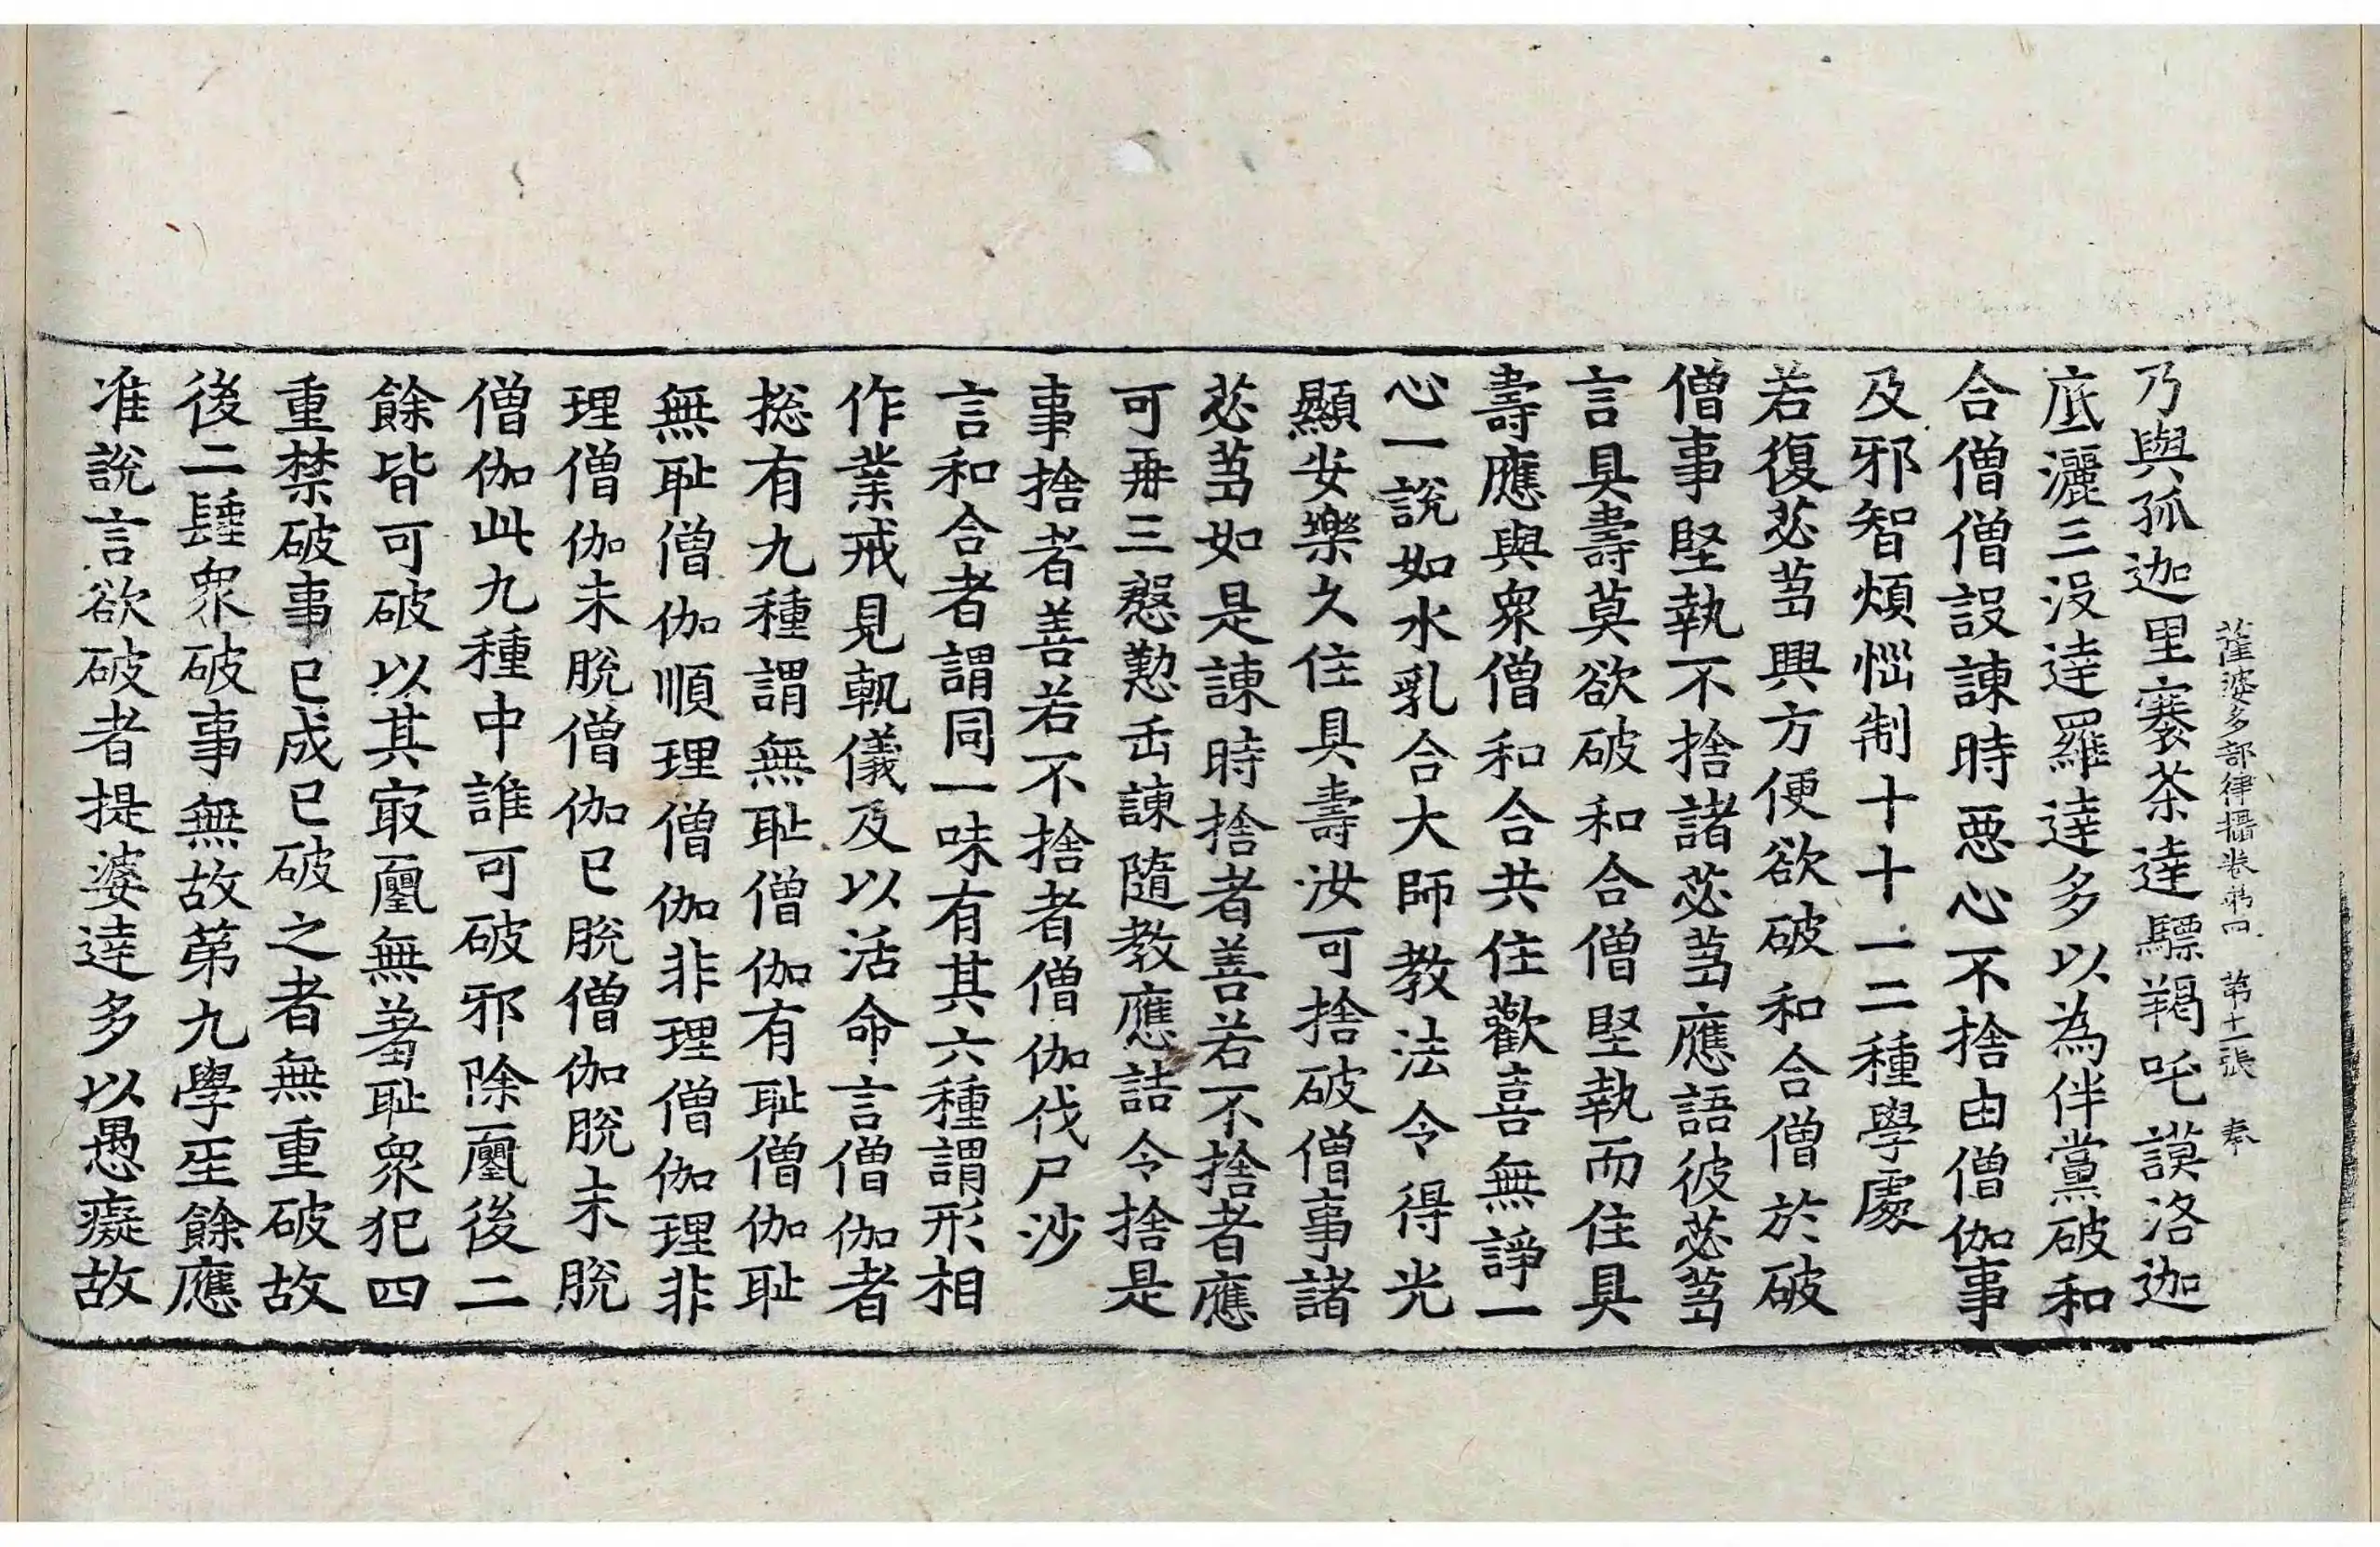 薩婆多部律攝卷第四 第十一張 奉
乃與孤迦里褰荼達驃羯吒謨洛迦
底灑三沒達羅達多以為伴黨破和
合僧僧設諫時惡心不捨由僧伽事
及邪智煩惱制十十一二種學處
若復苾芻興方便欲破和合僧於破
僧事堅執不捨諸苾芻應語彼苾芻
言具壽莫欲破和合僧堅執而住具
壽應與衆僧和合共住歡喜無諍一
心一說如水乳合大師教法令得光
顯安樂久住具壽汝可捨破僧事諸
苾芻如是諫時捨者善若不捨者應
可再三慇懃正諫隨教應詰令捨是
事捨者善若不捨者僧伽伐尸沙
言和合者謂同一味有其六種謂形相
作業戒見軌儀及以活命言僧伽者
捴有九種謂無耻僧伽有耻僧伽耻
無耻僧伽順理僧伽非理僧伽理非
理僧伽未脫僧伽已脫僧伽脫未脫
僧伽此九種中誰可破邪除初後二
餘皆可破以其㝡初無羞耻衆犯四
重禁破事已成已破之者無重破故
後二種衆破事無故第九學人餘應
准說言欲破者提婆達多以愚癡故